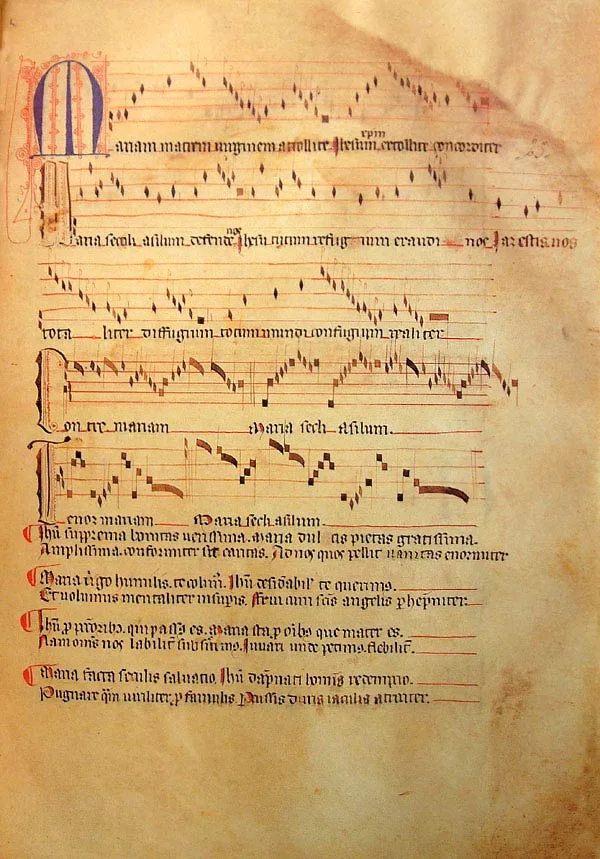 Mariam matrem virginem attollite Jhesum xpm extollite concorditer
Maria secli asilum defende nos Jhesu tutum refugium exaudi nos Jam estis nos
totaliter diffugium totum mundi confugium realiter
Contre mariam Maria secli asilum.
Tenor mariam Maria secli asilum.
Jhu suprema bonitas verissima. Maria dulcis pietas gratissima.
Amplissima conformiter sit caritas. Ad nos quos pellit vanitas enormiter
Maria virgo humilis. te colim. Jhu desiderabil te querimus.
Et volumus mentaliter in supis. frui cum scis angelis
Jhu p qui passus es. Maria sta p que mater es.
Nam omis nos labilit subsumo. Juvari unde petimo. flebilit.
Maria facta seculis salvatio. Jhu dapnati hominis redemptio.
Pugnare viriliter p famulis Percussis duris iaculis atrociter.